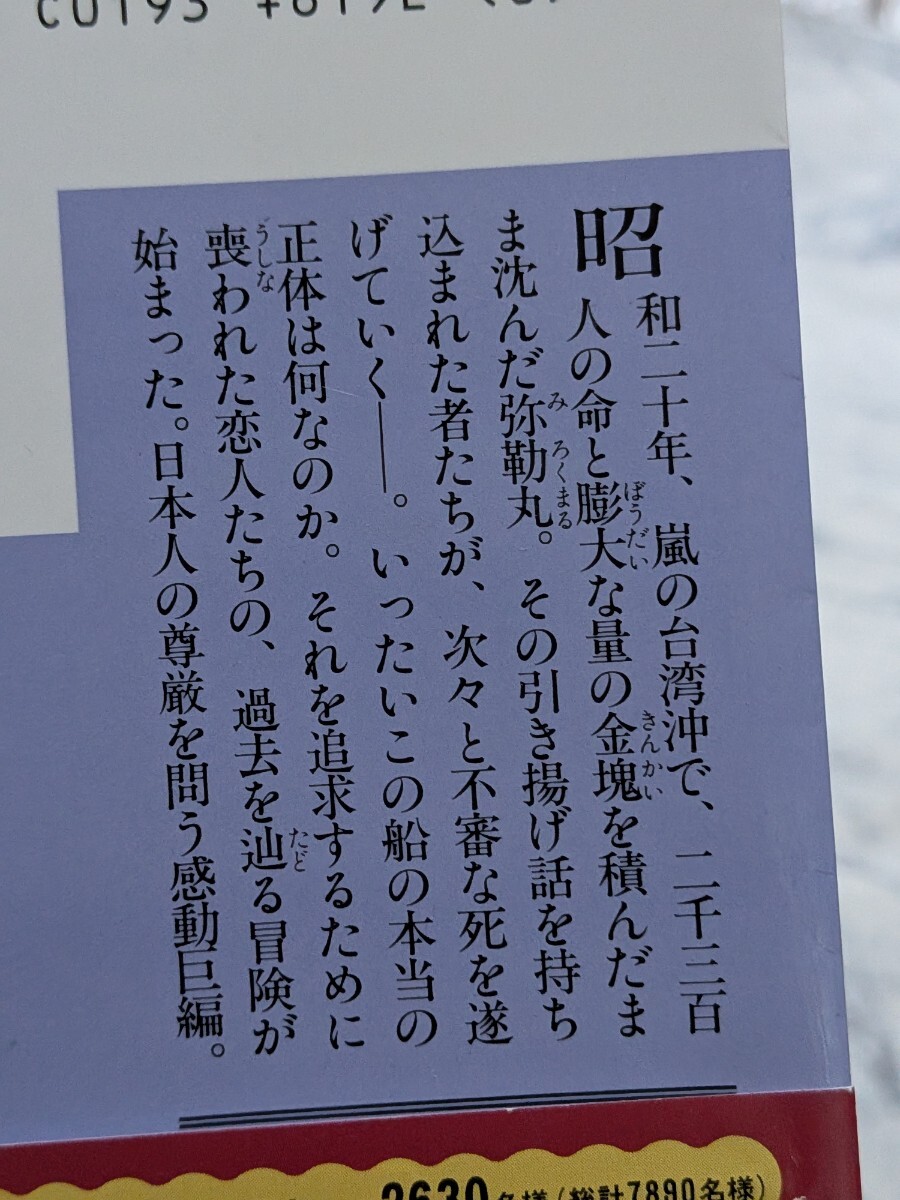 昭和二十年、嵐の台湾沖で、二千三百
人の命と膨大な量の金塊を積んだま
ま沈んだ弥勒丸。その引き揚げ話を持ち
込まれた者たちが、次々と不審な死を遂
げていく――。いったいこの船の本当の
正体は何なのか。それを追求するために
喪われた恋人たちの、過去を辿る冒険が
始まった。日本人の尊厳を問う感動巨編。
名様(総計7890名様)